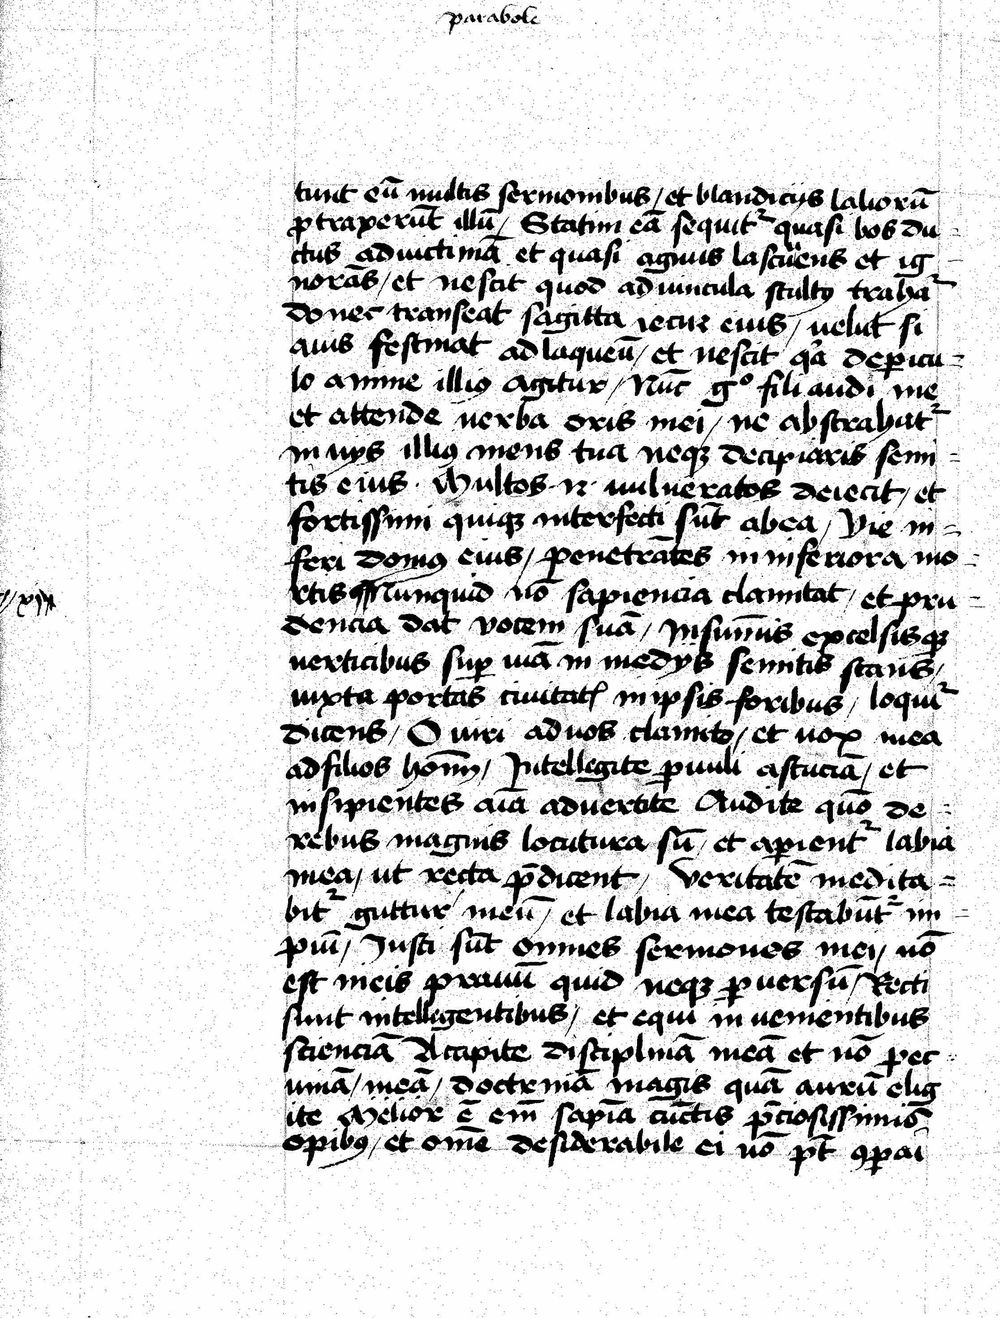 parabole
tunt eū multis sermonibus / et blandicijs labiorū
ꝓtraxerūt illū / Statim eā sequitᷣ quasi bos du
ctus ad victimā et quasi agnus lasciuiens et ig
norās / et nescit quod ad vincula stultꝰ trahaᷣ
donec transeat sagitta iecur eius / velut si
auis festinat ad laqueū / et nescit qa de ꝑicu
lo anime illiꝰ agitur / Nūc gͦ fili audi me
et attende verba oris mei / ne abstrahatᷣ
in vijs illiꝰ mens tua neqꝫ decipiaris semi
tis eius . Multos .n. vulneratos deiecit / et
fortissimi quiqꝫ interfecti sūt ab ea / Vie in
feri domꝰ eius / penetrātes in inferiora mo
rtis ¶ Nunquid nō sapiencia clamitat / et pru
dencia dat vocem suā / In sum̄is excelsisqꝫ
verticibus suꝑ viā in medijs semitis stans /
iuxta portas ciuitatꝭ in ipsis foribus / loquiᷣ
dicens / O viri ad vos clamito / et vox mea
ad filios hoīm / Intelligite ꝑuuli astuciā / et
insipientes aīa advertite Audite quō de
rebus magnis locutura sū / et aꝑientᷣ labia
mea / ut recta p̄dicent / Veritatē medita
bitᷣ guttur meū / et labia mea testabūtᷣ im
piū / Iusti sūt omnes sermones mei / nō
est meis prauū quid neqꝫ ꝑuersū / Recti
sunt intelligentibus / et equi in venientibus
scienciā Accipite disciplinā meā et nō pec
uniā / meā / doctrinā magis quā aurū elig
ite Melior ē em̄ sapīa cūctis p̄ciosissimis
opibꝰ / et omē desiderabile ei nō pt̄ ꝯꝑai